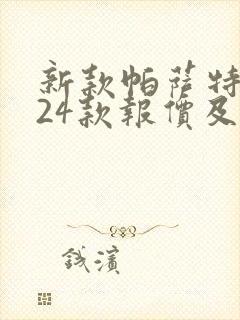 新款帕萨特
24款報價及
錢濱